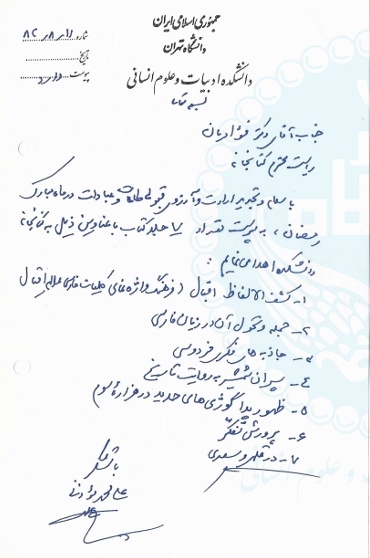 جمهوری اسلامی ایران
دانشگاه تهران
دانشکده ادبیات و علوم انسانی
شماره ۸۲٫۸٫۱۱
تاریخ
پیوست دارد
بسمه تعالی
جناب آقای دکتر فؤادیان
ریاست محترم کتابخانه
با سلام و تجدید ارادت و آرزوی قبولی طاعات و عبادات در ماه مبارک
رمضان، به پیوست تعداد ۷ جلد کتاب با عناوین ذیل به کتابخانه
دانشکده اهدا می‌نمایم :
۱- کشف الالفاظ اقبال (فرهنگ واژه‌نمای کلیات فارسی علامه اقبال
۲- جمله و تحول آن در زبان فارسی
۳- جاذبه‌های فکری فردوسی
۴- ایران شمشیر به روایت تاریخ
۵- ظهور پداگوژی‌های جدید در هزاره سوم
۶- پرورش تفکر
۷- در قلمرو سعدی
با تشکر
علی محمد مؤذنی